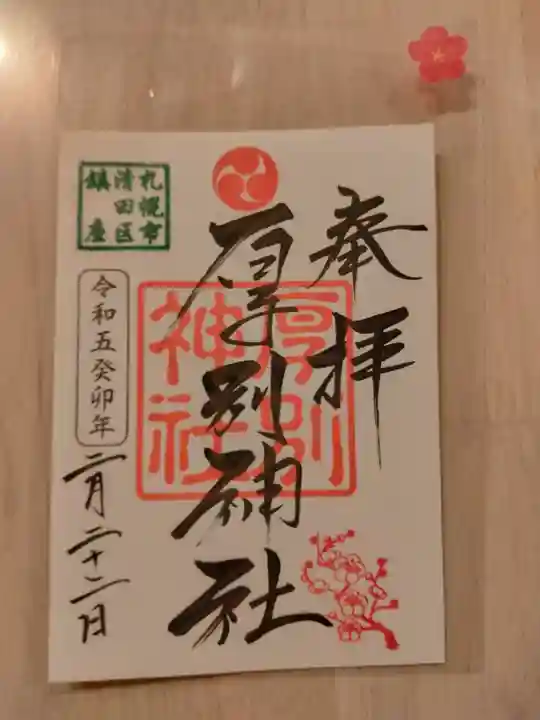 奉拝
厚別神社
厚別
神社
札幌市
清田区
鎮座
令和五癸卯年
二月二十二日